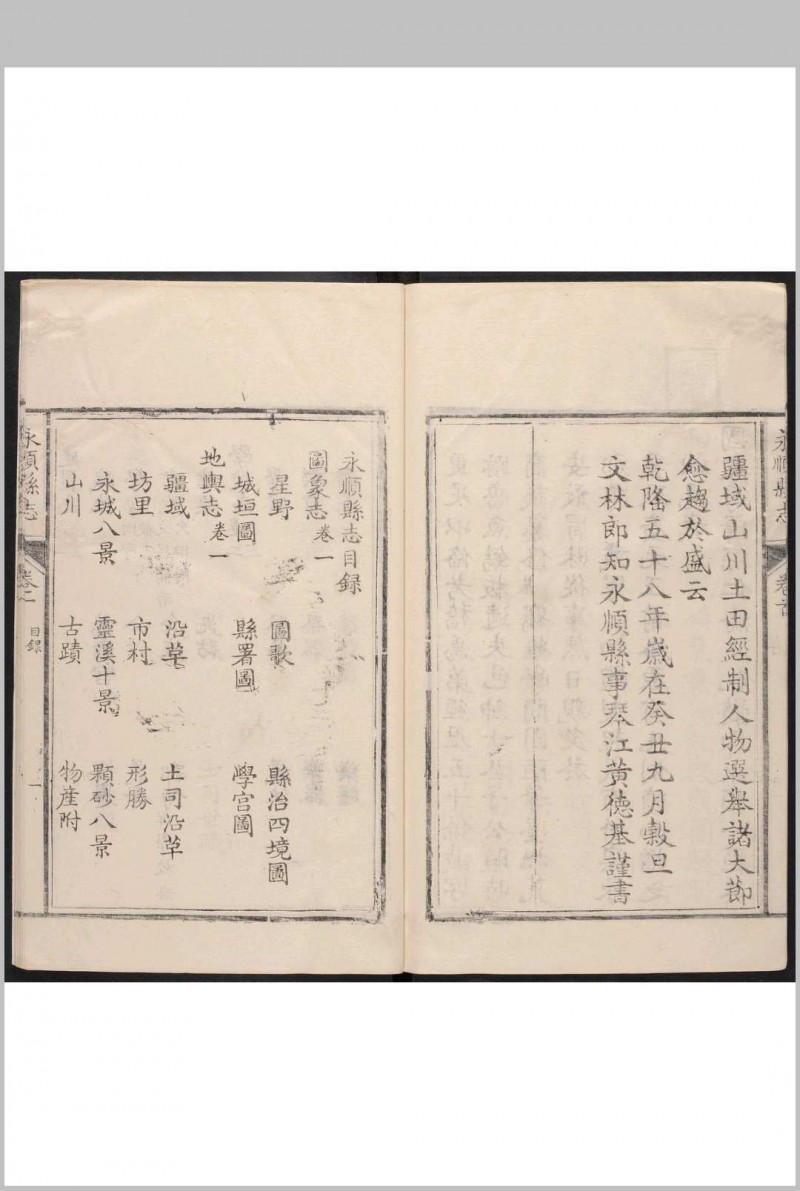 疆域山川土田經制人物選舉諸大節
愈趨於盛云
乾隆五十八年歲在癸丑九月穀旦
文林郎知永順縣事琴江黃德基謹書
永順縣志 卷首
永順縣志目録
圖象志 卷一
星野 圖歌 縣治四境圖
城垣圖 縣署圖 學宫圖
地輿志 卷一
疆域 沿革 土司沿革
坊里 市村 形勝
永城八景 靈溪十景 顆砂八景
山川 古蹟 物産附
永順縣志 目録 一